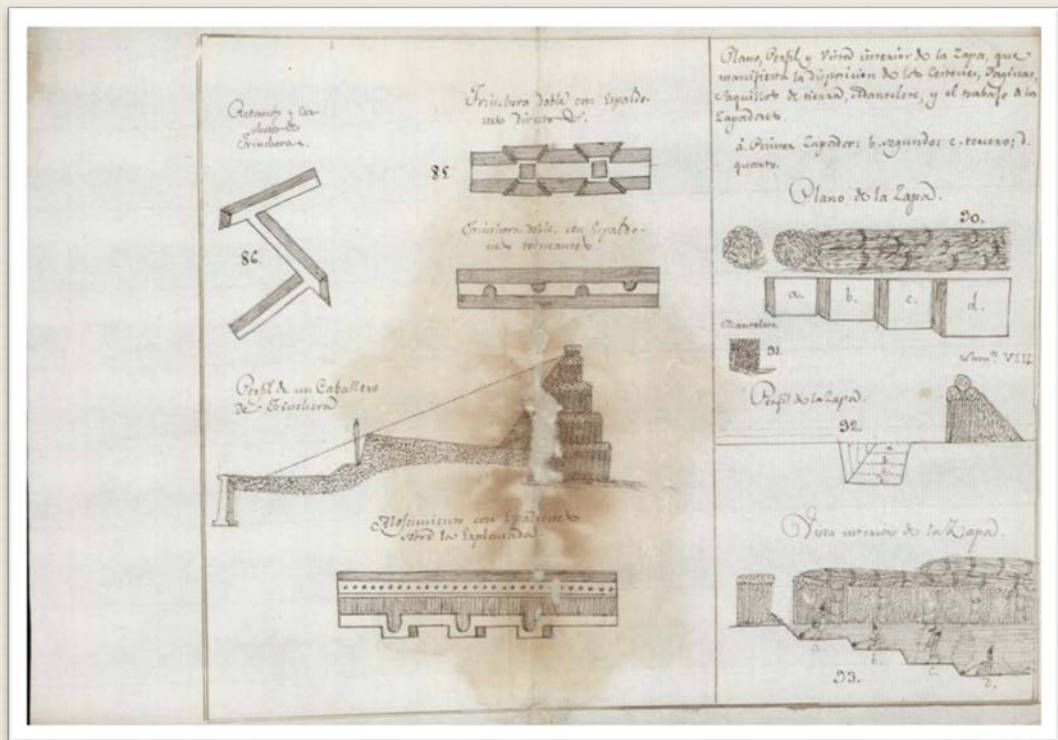 Retorno y Co-
Trinchera.
86.
Trinchera doble con Espaldo-
nes directos.
85.
Trinchera doble con Espaldo-
nes
Perfil de un Caballero
de Trinchera
Alojamiento con Espaldones
sobre la Explanada.
Plano, Perfil y Vista interior de la Zapa, que
manifiesta la disposicion de los Cestones, Faginas,
Saquillos de tierra, Mantelete, y el trabajo de los
Zapadores.
a. Primer Zapador: b. segundo: c. tercero; d.
quarto.
Plano de la Zapa.
90.
a. b. c. d.
Mantelete
91.
Lamª. VIII
Perfil de la Zapa.
92.
Vista interior de la Zapa.
a. b. c. d.
93.